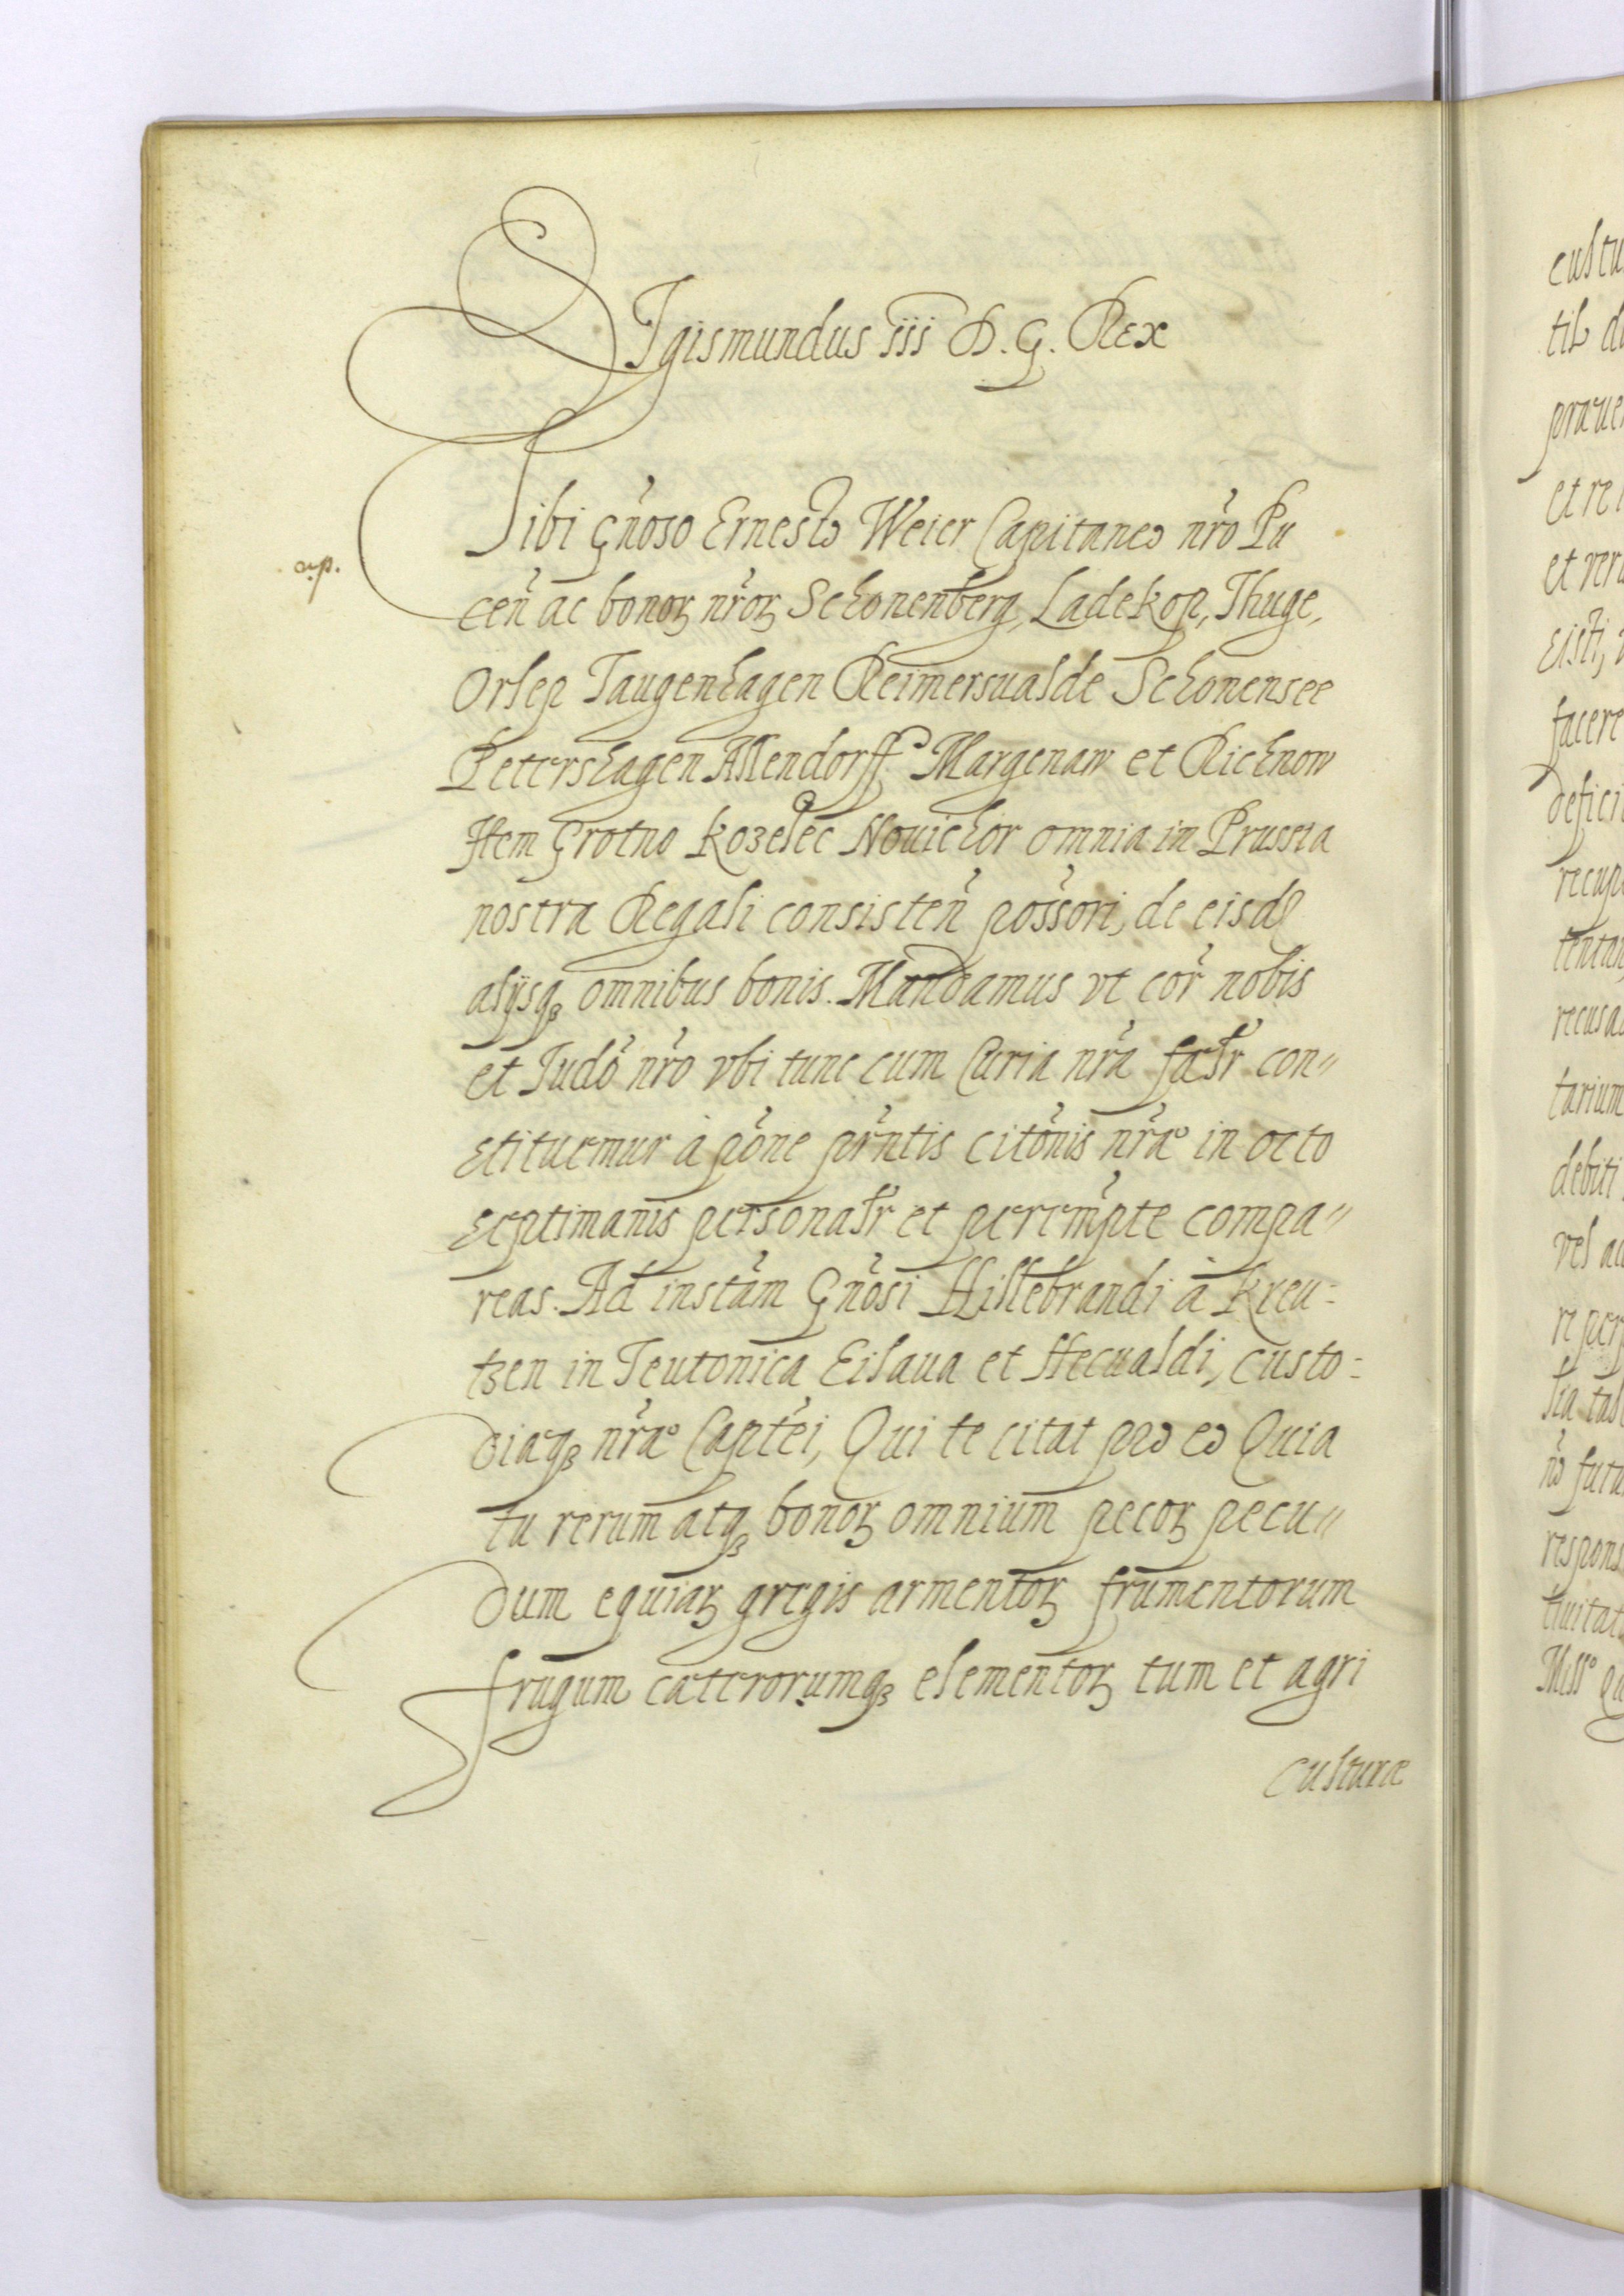 SIgismundus iii D. G. Rex
Tibi Gn̄oso Ernesto Weier Capitaneo nr̄o Pu
ap.
cen̄ ac bonoꝝ nr̄oꝝ Schonenberg, Ladekop, Thuge,
Orlep Taugenhagen Reimersualde Schonensee
Petershagen Allendorff Margenaw et Richnow
Item Grotno Kozelec Nouichor omnia in Prussia
nostra Regali consisten̄ pos̄sori, de eisd
alijsqꝫ omnibus bonis. Mandamus vt cor̄ nobis
et Iudō nr̄o vbi tunc cum Curia nr̄a fālr con„
stituemur à pōne pr̄ntis citōnis nr̄ae in octo
septimanis personalr̄ et perem̄pte compa„
reas. Ad instām Gn̄osi Hillebrandi à Kreu-
tzen in Teutonica Eilaua et Hecualdi, custo-
diaeqꝫ nr̄ae Captēi, Qui te citat pro eo Quia
tu rerum atqꝫ bonoꝝ omnium pecoꝝ pecu„
dum equiaꝝ gregis armentoꝝ frumentorum
frugum caeterorumqꝫ elementoꝝ tum et agri
culturae
cultu
til
et re
facere
debiti
vel
respons